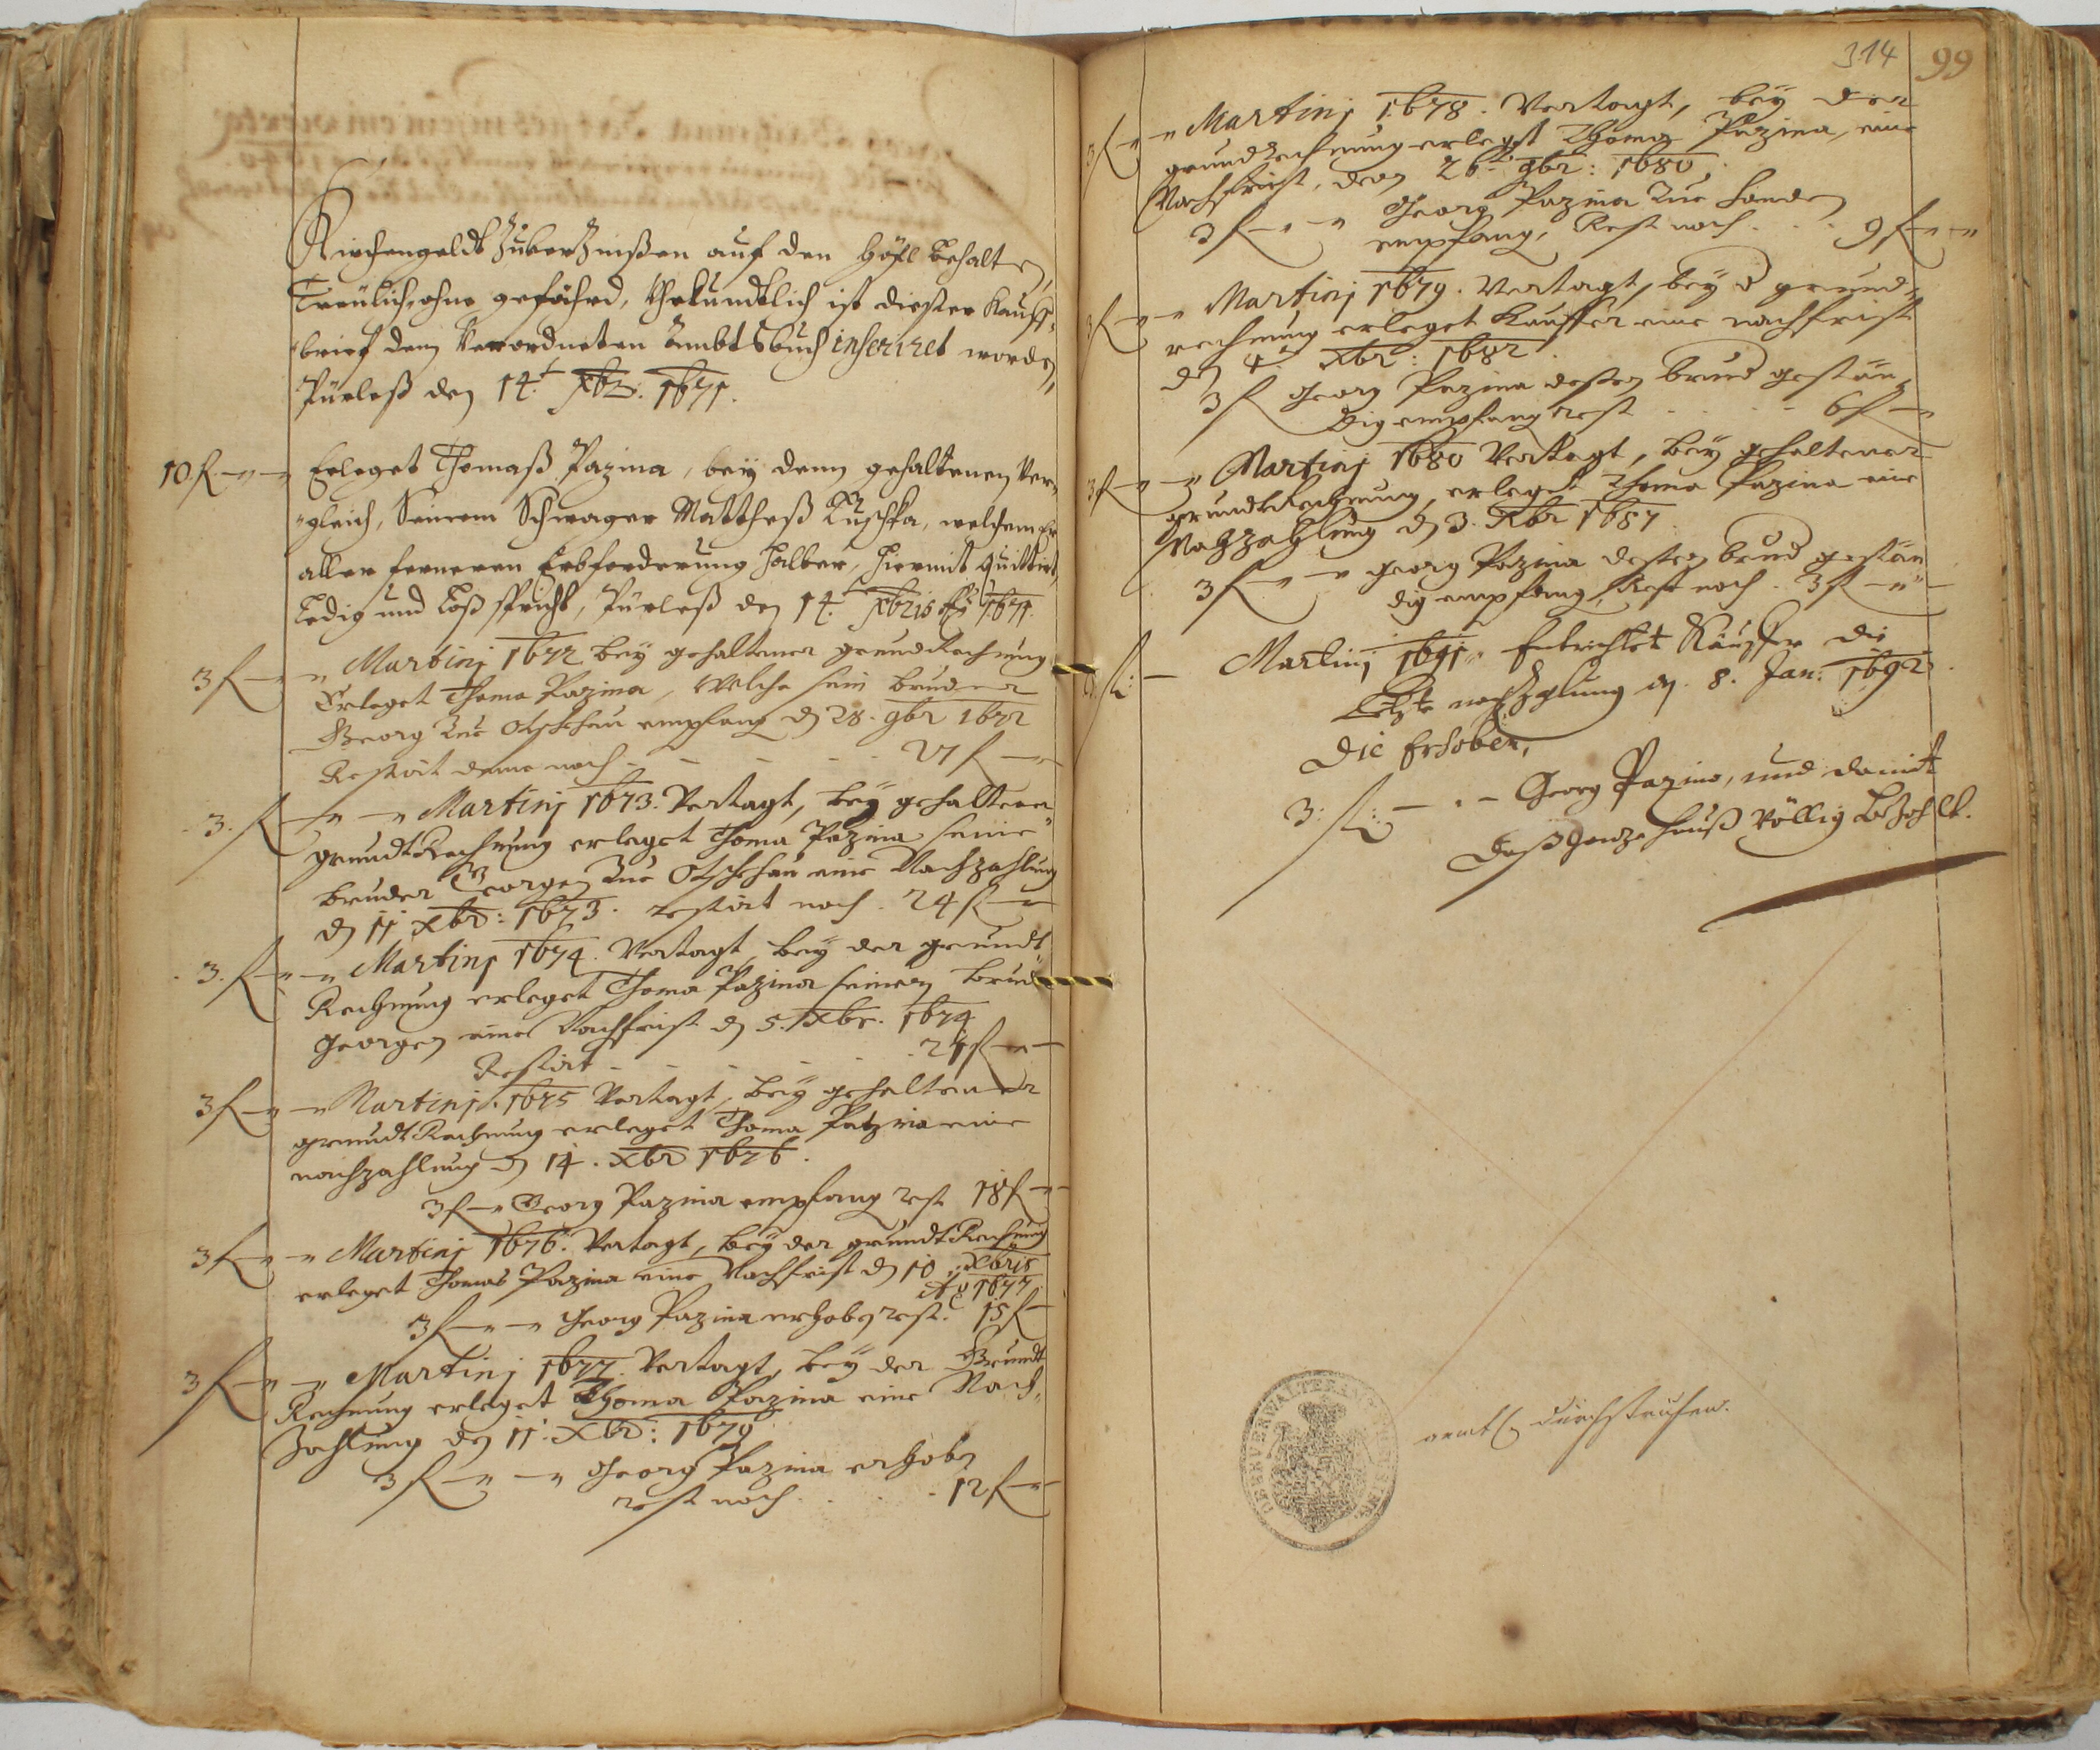 Kirchengeldt Zuverzinßen auf den Höfl behalten,
Treülich, ohne gefährd, Uhrkundtlich ist dießer Kauff-
brieff dem Verordneten Ambtsbuch inseriret worden,
Pürleß den 14.t Xbr: 1671.
10 f — " — Erleget Thomaß Pazina, bey dem gehaltenen Ver-
gleich, Seinem Schwager Mattheß, welchem Er
aller ferneren Erbforderung halber, hiermit quittirt,
Ledig und Loß spricht, Pürleß den 14.t Xbris Ao 1671.
3 f — " Martinj 1672 bey gehaltener grundtRechnung
Erleget Thoma Pazina, Welche sein bruder
Georg Zue Otschehau empfang d 28. 9br 1672
Restirt deme noch . . . 27 f —
3. f — " — " Martinj 1673. Vertagt, bey gehaltener
grundtRechnung erleget Thoma Pazina seine
bruder Georgen Zue Otschehau eine Nachzahlung
d 11 Xbr: 1673. restirt noch . 24 f —
3. f — " — Martinj 1674. Vertagt, bey der grundt
Rechnung erleget Thoma Pazina seinen brud
Georgen eine Nachfrist d 5. Xbr. 1674
Restirt . . . 21 f — " —
3 f — " — Martinj. 1675 Vertagt, bey gehaltener
grundtRechnung erleget Thoma Patzina eine
nachzahlung d 14. Xbr 1676.
3 f — " Georg Pazina empfang rest 18 f — " —
3 f — " — " Martinj 1676. Vertagt, bey der grundtRechnung
erleget Thomas Pazina eine Nachfrist d 10. Xbris
Ao 1677
3 f — " — " Georg Pazina erhoben rest. 15 f —
3 f — " — " Martinj 1677. Vertagt, bey der Grundt
Rechnung erleget Thoma Pazina eine Nach-
Zahlung den 11. Xbr: 1679
3 f — " — " Georg Pazina erhoben
rest noch . . . 12 f — " —
314 99
3 f — " — " Martinj 1678. Vertagt, bey der
grundtRechnung erlegt Thoma Pazina, eine
Nachfrist, den 26. 9br: 1680,
3 f — " — " Georg Pazina Zue handen
empfang, Rest noch . . . 9 f — " — "
3 f — " — " Martinj 1679. Vertagt, bey d grund-
rechnung erleget Kauffer eine nachfrist
den 4. Xbr: 1682.
3 f Georg Pazina dessen brud gestän-
dig empfang rest . . . 6 f — "
3 f — " — " Martinj 1680 Vertagt, bey gehaltener
grundtRechnung, erleget Thoma Pazina eine
Nachzahlung d 3. Xbr 1687.
3 f — " — " Georg Pazina dessen brud gestän
dig empfang, Rest noch . 3 f — " —
3 f: — Martinj 1691 Entrichtet Käuffer die
Letzte nachzahlung d. 8. Jan: 1692.
Die Erhoben,
3: f: — " — Georg Pazina, und damit
daß gantze hauß völlig bezahlt.
durchstrichen.